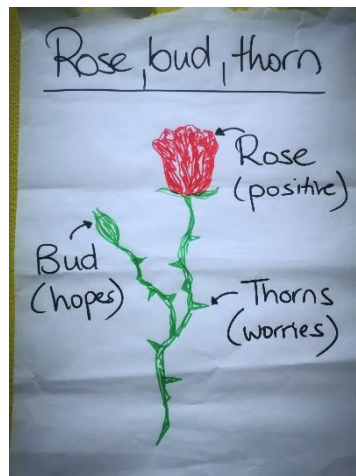 Rose, bud, thorn
Rose
(positive)
Bud
(hopes)
Thorns
(worries)